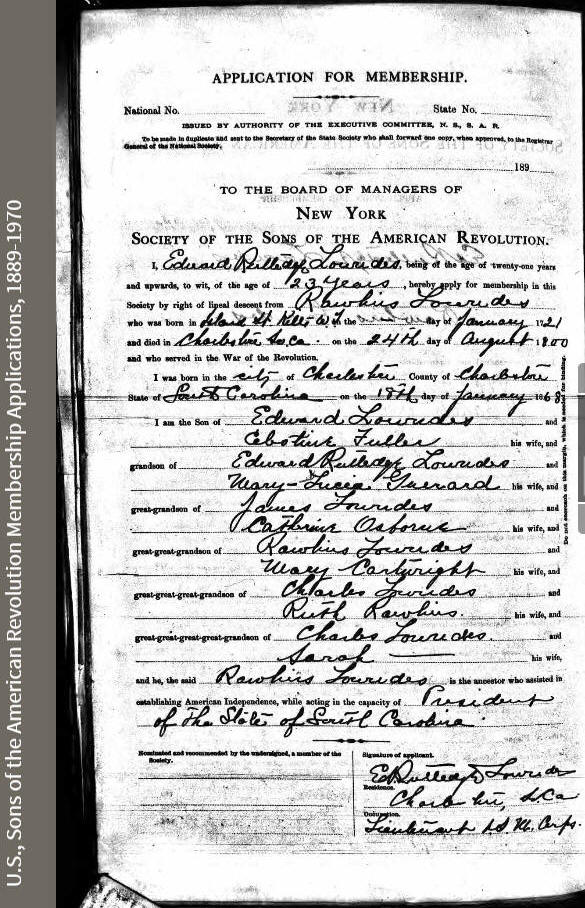 U.S., Sons of the American Revolution Membership Applications, 1889-1970
APPLICATION FOR MEMBERSHIP.
National No. State No.
ISSUED BY AUTHORITY OF THE EXECUTIVE COMMITTEE, N. S., S. A. R.
To be made in duplicate and sent to the Secretary of the State Society who shall forward one copy, when approved, to the Registrar
General of the National Society.
189
TO THE BOARD OF MANAGERS OF
NEW YORK
SOCIETY OF THE SONS OF THE AMERICAN REVOLUTION.
I, Edward Rutledge Lowndes, being of the age of twenty-one years
and upwards, to wit, of the age of 23 years, hereby apply for membership in this
Society by right of lineal descent from Rawlins Lowndes
who was born in Island St. Kitts W.I. on the day of January 1721
and died in Charleston So. Ca. on the 24th day of August 1800
and who served in the War of the Revolution.
I was born in the city of Charleston County of Charleston
State of South Carolina on the 18th day of January 1868
I am the Son of Edward Lowndes and
Celestine Fuller his wife, and
grandson of Edward Rutledge Lowndes and
Mary-Lucia Guerard his wife, and
great-grandson of James Lowndes and
Catherine Osborne his wife, and
great-great-grandson of Rawlins Lowndes and
Mary Cartwright his wife, and
great-great-great-grandson of Charles Lowndes and
Ruth Rawlins. his wife, and
great-great-great-great-grandson of Charles Lowndes. and
Sarah — his wife,
and he, the said Rawlins Lowndes is the ancestor who assisted in
establishing American Independence, while acting in the capacity of President
of the State of South Carolina
Do not encroach on this margin, which is needed for binding.
Nominated and recommended by the undersigned, a member of the
Society.
Signature of applicant.
E. Rutledge Lowndes
Residence.
Charleston, S. Ca
Occupation.
Lieutenant U.S. M. Corps.